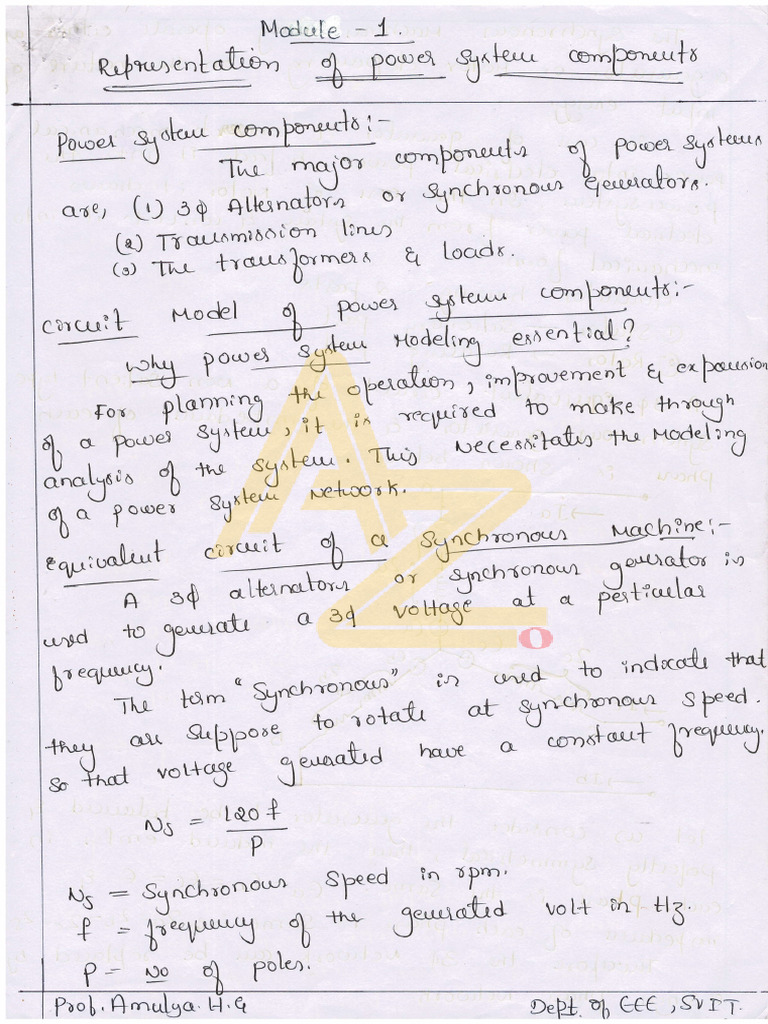 Module - 1.
Representation of power system components
Power system components:-
The major components of power systems
are, (1) 3ϕ Alternators or synchronous Generators.
(2) Transmission lines
(3) The transformers & Loads.
Circuit Model of power system components:-
Why power system Modeling essential?
For planning the operation, improvement & expansion
of a power system, it is required to make through
analysis of the system. This necessitates the Modeling
of a power system Network.
Equivalent circuit of a synchronous Machine:-
A 3ϕ alternators or synchronous generator is
used to generate a 3ϕ voltage at a perticular
frequency.
The term "synchronous" is used to indicate that
they are suppose to rotate at synchronous speed.
so that voltage generated have a constant frequency.
Ns = 120 f
P
Ns = Synchronous speed in rpm.
f = frequency of the generated volt in Hz
P = No of poles.
Prof. Amulya. H. G Dept. of EEE, SVIT.
AZ
O